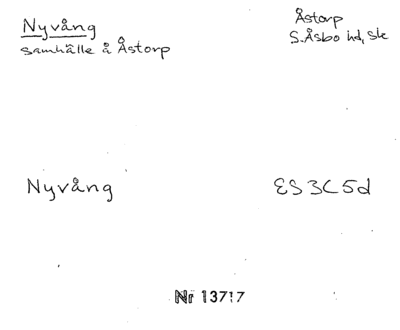 Nyvång
samhälle å Åstorp
Åstorp
S. Åsbo hd, Sk
Nyvång
ES 3C 5d
Nr 13717